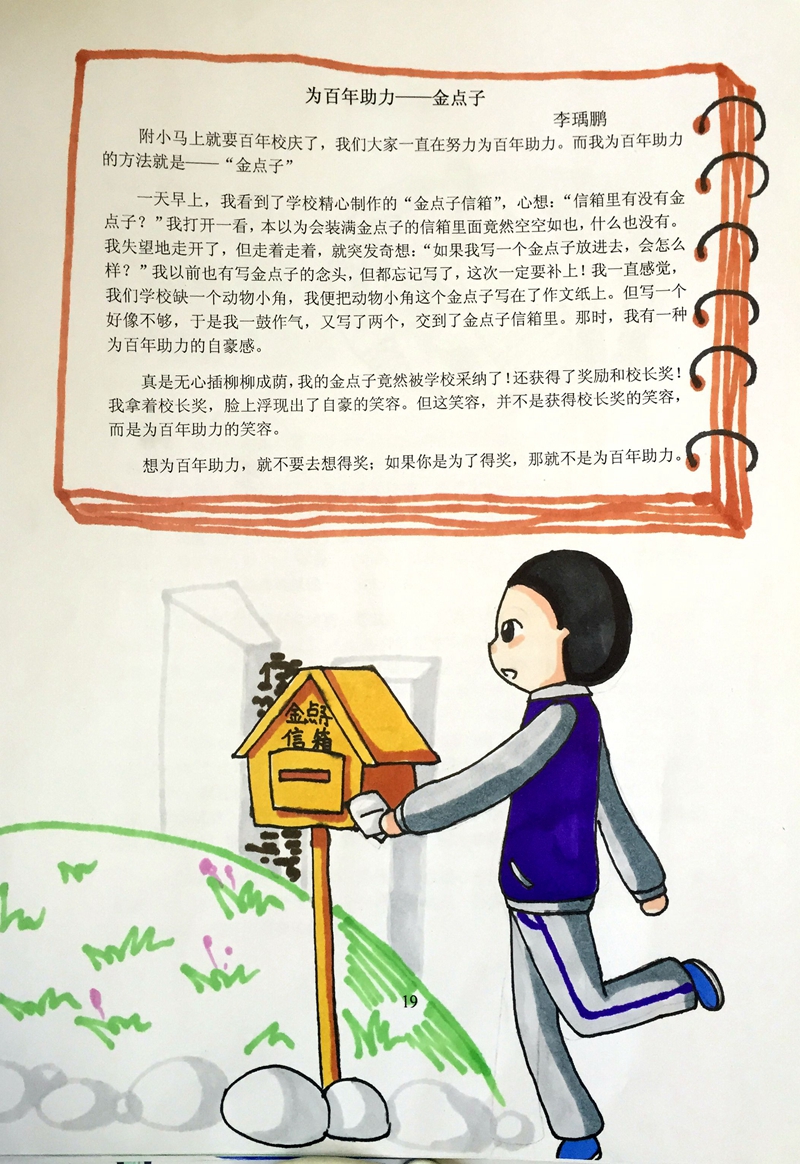 为百年助力——金点子
李瑀鹏
附小马上就要百年校庆了，我们大家一直在努力为百年助力。而我为百年助力
的方法就是——“金点子”
一天早上，我看到了学校精心制作的“金点子信箱”，心想：“信箱里有没有金
点子？”我打开一看，本以为会装满金点子的信箱里面竟然空空如也，什么也没有。
我失望地走开了，但走着走着，就突发奇想：“如果我写一个金点子放进去，会怎么
样？”我以前也有写金点子的念头，但都忘记写了，这次一定要补上！我一直感觉，
我们学校缺一个动物小角，我便把动物小角这个金点子写在了作文纸上。但写一个
好像不够，于是我一鼓作气，又写了两个，交到了金点子信箱里。那时，我有一种
为百年助力的自豪感。
真是无心插柳柳成荫，我的金点子竟然被学校采纳了！还获得了奖励和校长奖！
我拿着校长奖，脸上浮现出了自豪的笑容。但这笑容，并不是获得校长奖的笑容，
而是为百年助力的笑容。
想为百年助力，就不要去想得奖；如果你是为了得奖，那就不是为百年助力。
金点子
信箱
19